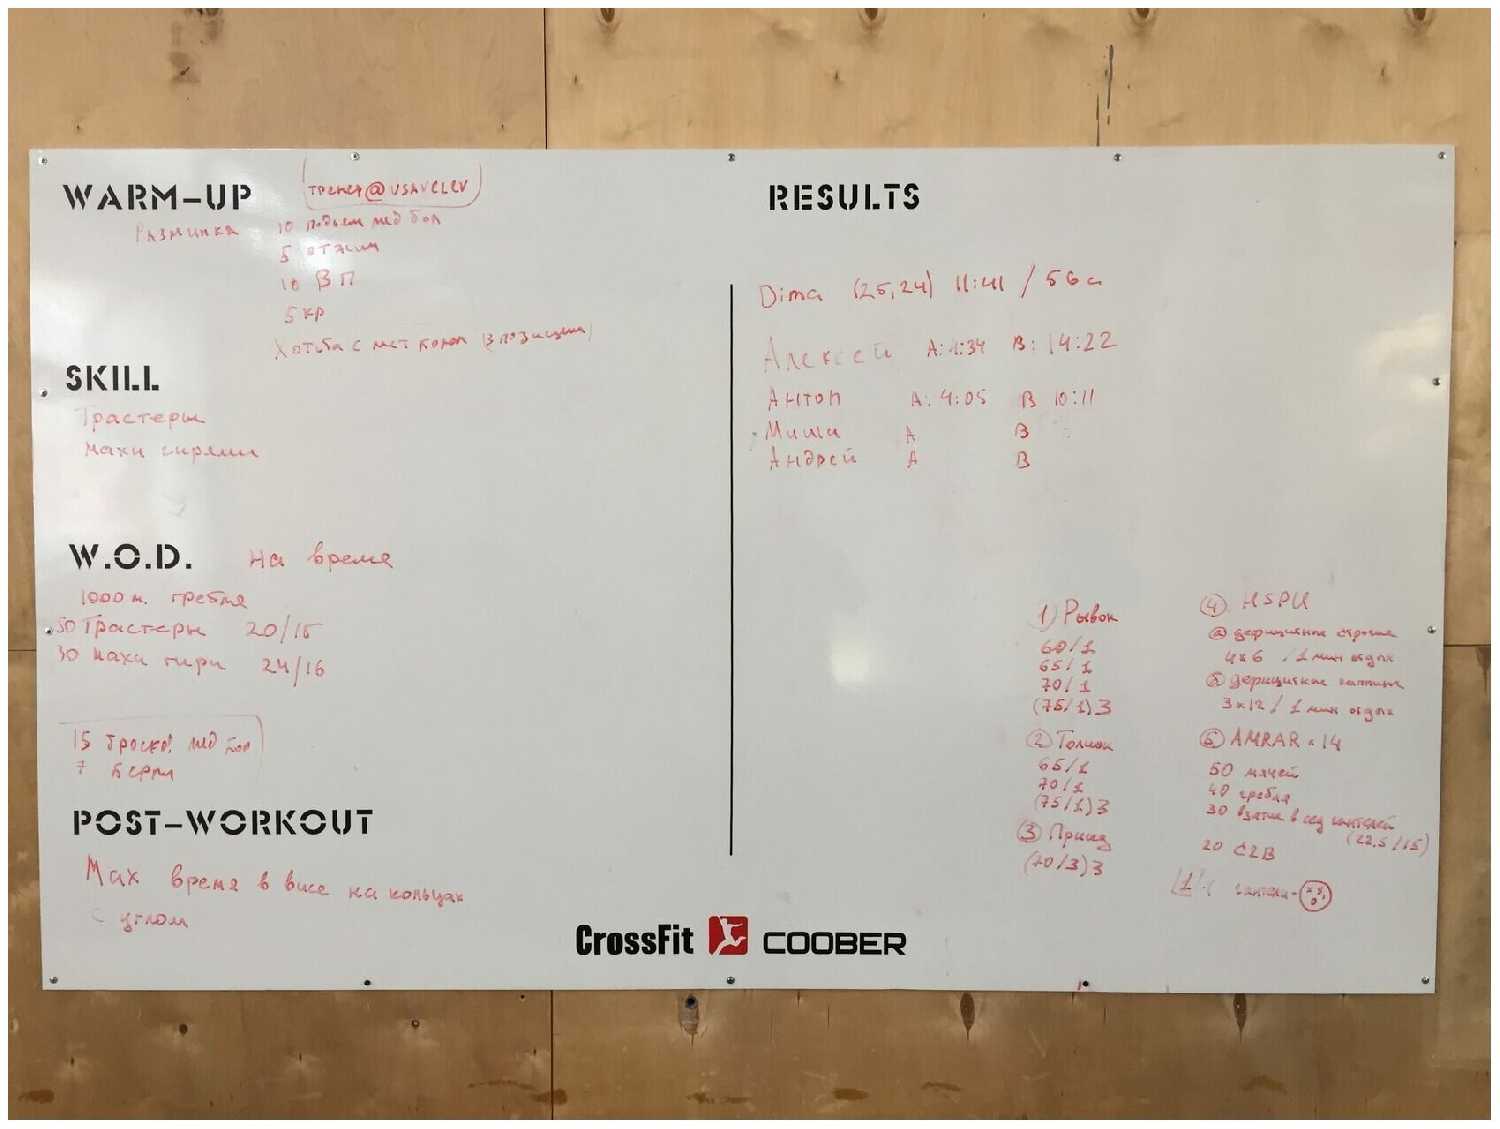 WARM-UP
тренер@USAVELEV
Разминка
10 подъем мед бол
5 отжим
10 ВП
5 кр
Ходьба с мет колом (3 позиции)
SKILL
Трастеры
махи гирями
W.O.D. На время
1000 м. гребля
50 Трастеры 20/15
30 махи гири 24/16
15 броск. мед бол
7 берпи
POST-WORKOUT
Max время в висе на кольцах
с углом
RESULTS
Dima (25,24) 11:41 / 56с
Алексей A: 4:34 B: 14:22
Антон A: 4:05 B 10:11
Миша A B
Андрей A B
1) Рывок
60/1
65/1
70/1
(75/1)3
2 Толчок
65/1
70/1
(75/1)3
3 Присед
(70/3)3
4 HSPU
4x6 / 1 мин отдых
3x12 / 1 мин отдых
5 AMRAP 14
50 мячей
40 гребля
30 взятие в сед гантелей
(22,5/15)
20 C2B
гантели-
CrossFit COOBER